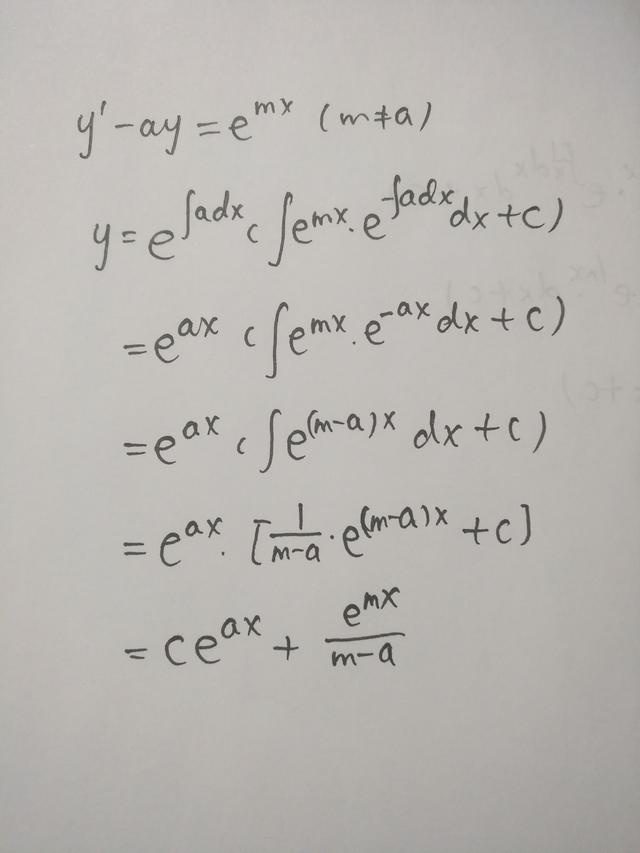 y' - ay = e^{mx} (m ≠ a)
y = e^{∫adx} (∫e^{mx} · e^{-∫adx} dx + c)
= e^{ax} (∫e^{mx} · e^{-ax} dx + c)
= e^{ax} (∫e^{(m-a)x} dx + c)
= e^{ax} · [\frac{1}{m-a} · e^{(m-a)x} + c]
= ce^{ax} + \frac{e^{mx}}{m-a}